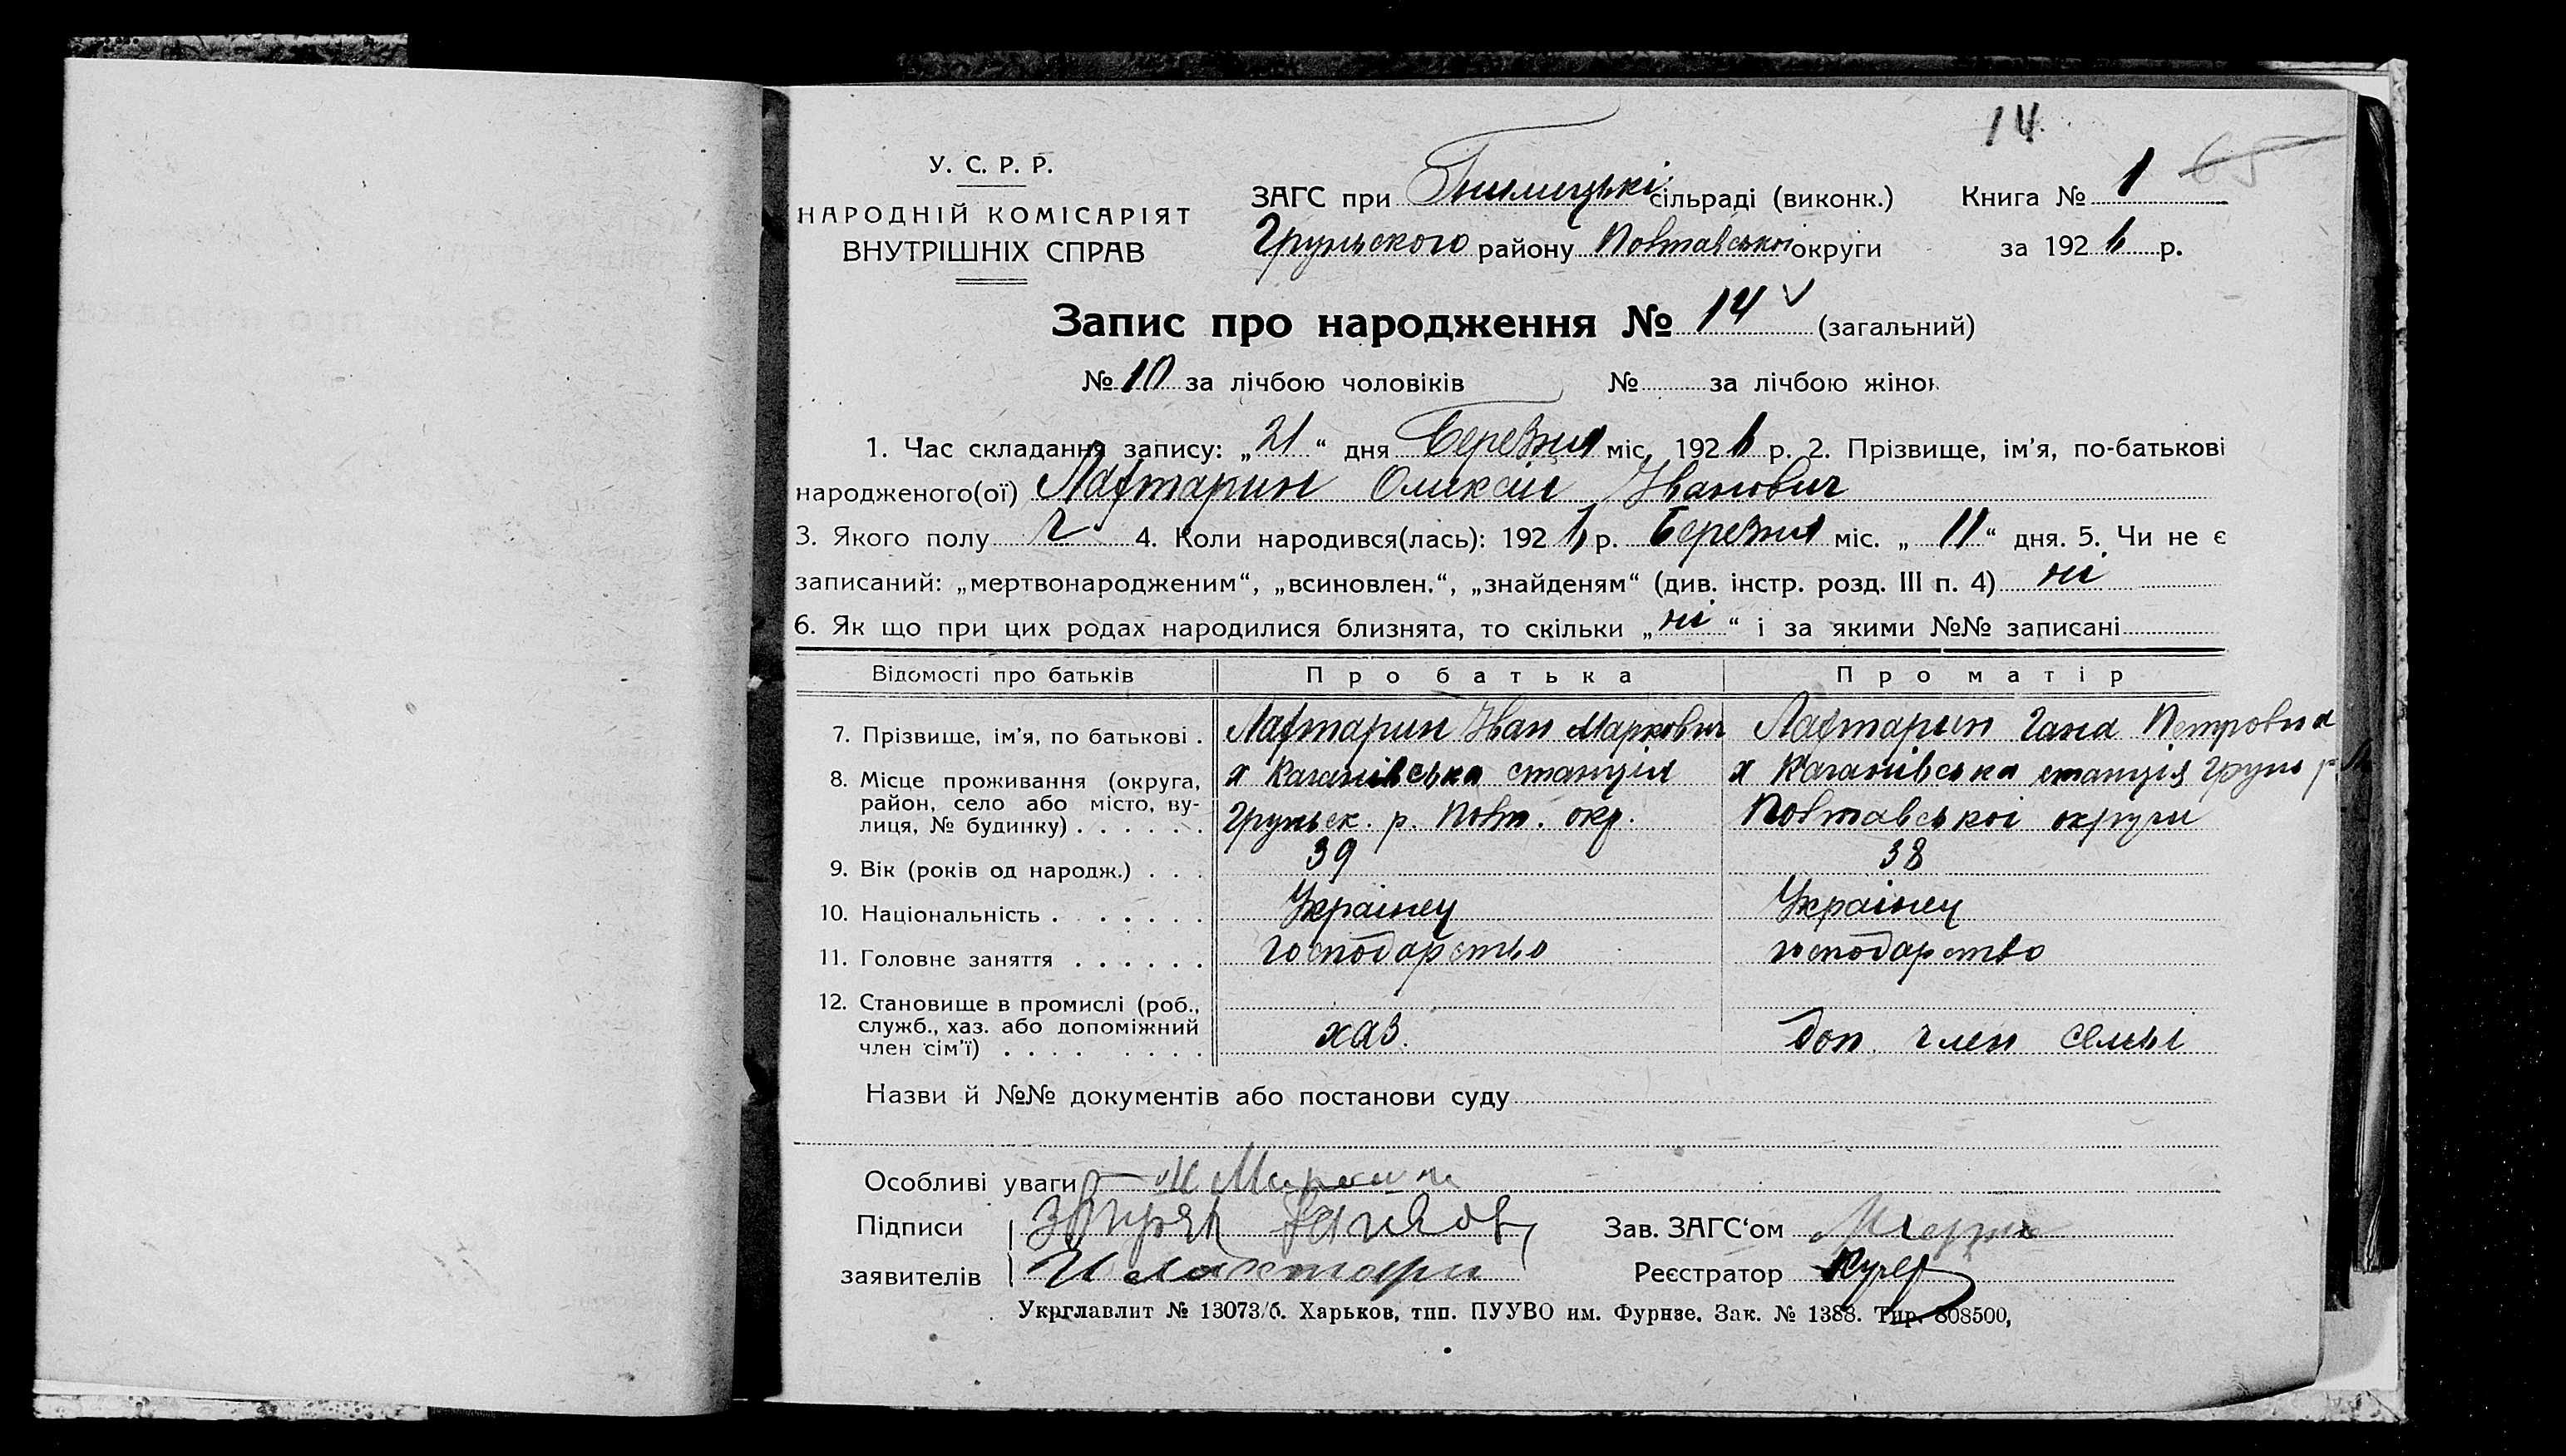 14.
65
У. С. Р. Р.
НАРОДНІЙ КОМІСАРІЯТ
ВНУТРІШНІХ СПРАВ
ЗАГС при Гнилицькі сільраді (виконк.) Книга № 1
Груньского району Повтавської округи за 1926 р.
Запис про народження № 14 (загальний)
№ 10 за лічбою чоловіків № за лічбою жінок
1. Час складання запису: „21“ дня Березня міс. 1926 р. 2. Прізвище, ім'я, по-батькові
народженого(ої) Лафтарин Оликсій Іванович
3. Якого полу ч 4. Коли народився(лась): 1926 р. Березня міс. „11“ дня. 5. Чи не є
записаний: „мертвонародженим“, „всиновлен.“, „знайденям“ (див. інстр. розд. III п. 4) ні
6. Як що при цих родах народилися близнята, то скільки „ні“ і за якими №№ записані
Відомості про батьків Про батька Про матір
7. Прізвище, ім'я, по батькові . Лафтарин Іван Маркович Лафтарин Гана Петровна
8. Місце проживання (округа, х Каганівська станція х Каганівська станція Грунь р
район, село або місто, ву-
лиця, № будинку) . . . . . . Груньск. р. Повт. окр. Повтавської округи
9. Вік (років од народж.) . . . 39 38
10. Національність . . . . . . Украінец Украінец
11. Головне заняття . . . . . . господарство господарство
12. Становище в промислі (роб.,
служб., хаз. або допоміжний
член сім'ї) . . . . . . . . хаз. доп. член семьі
Назви й №№ документів або постанови суду
Особливі уваги
Підписи Зав. ЗАГС'ом
заявителів И лахтари Реєстратор Кучер
Укрглавлит № 13073/б. Харьков, тип. ПУУВО им. Фурнзе. Зак. № 1388. Тир. 808500,